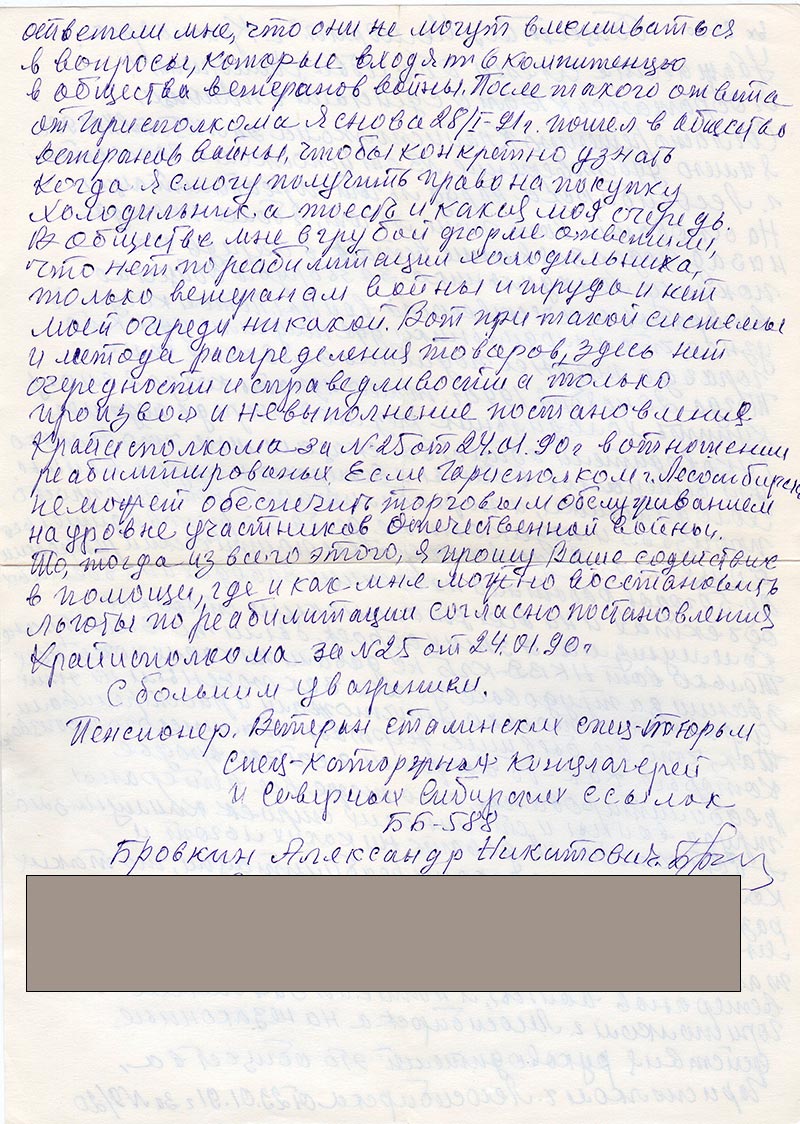 ответели мне, что они не могут вмешиваться
в вопросы, которые входят в компитенцю
в общества ветеранов войны. После такого ответа
от Гарисполкома Я снова 28/I-91г. пошел в общество
ветеранов войны, чтобы конкретно узнать
когда Я смогу получить право на покупку
холодильник. а тоесть и какая моя очередь.
В обществе мне в грубой форме ответили,
что нет по реабилитации холодильника,
только ветеранам войны и труда и нет
моей очереди никакой. Вот при такой системы
и метода распределения товаров, здесь нет
очередности и справедливости а только
произвол и невыполнение постановления
крайисполкома за №25 от 24.01.90г в отношении
реабилитированых. Если Гарисполком г. Лесосибирска
неможет обеспечить торговым обслуживанием
на уровне участников Отечественной войны.
То, тогда из всего этого, Я прошу Ваше содействие
в помощи, где и как мне можно восстановить
льготы по реабилитации согласно постановления
Крайисполкома за №25 от 24.01.90г
С большим уважением.
Пенсионер. Ветеран сталинских спец-тюрьм,
спец-каторжных концлагерей
и Северных Сибирских ссылак
ББ-588
Бровкин Александр Никитович.